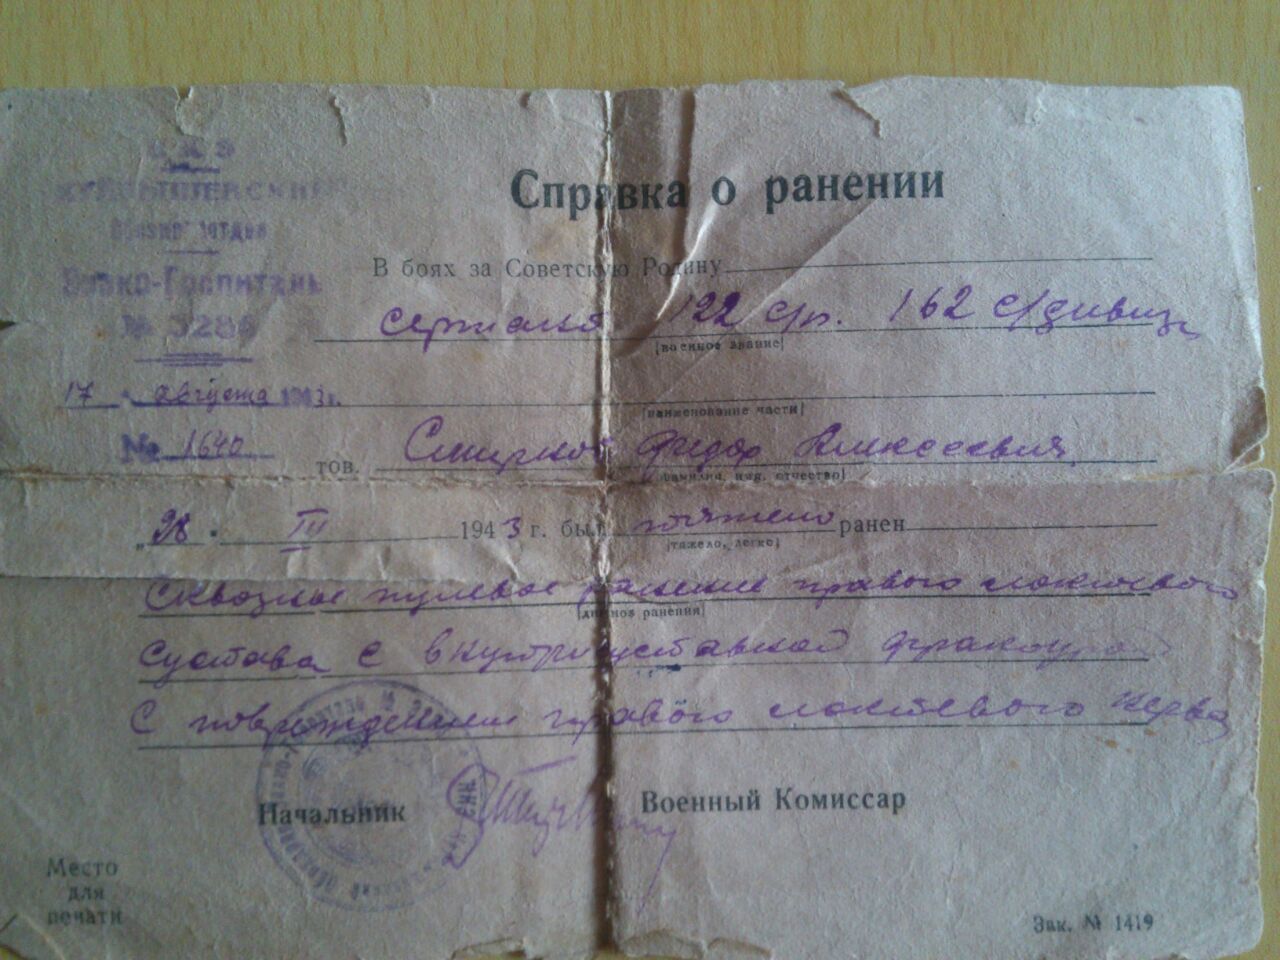 КУЙБЫШЕВСКИЙ
Военно-Госпиталь
№ 3286
17 августа 1943 г.
№ 1640
Справка о ранении
В боях за Советскую Родину
сержант 122 с/п. 162 с/дивиз
[военное звание]
[наименование части]
тов. Смирнов Федор Алексеевич
[фамилия, имя, отчество]
„28" III 1943 г. был тяжело ранен
[тяжело, легко]
Сквозное пулевое ранение правого локтевого
[диагноз ранения]
сустава с внутрисуставной фрактурой
с повреждением правого локтевого нерва
Начальник
Военный Комиссар
Место
для
печати
Зак. № 1419